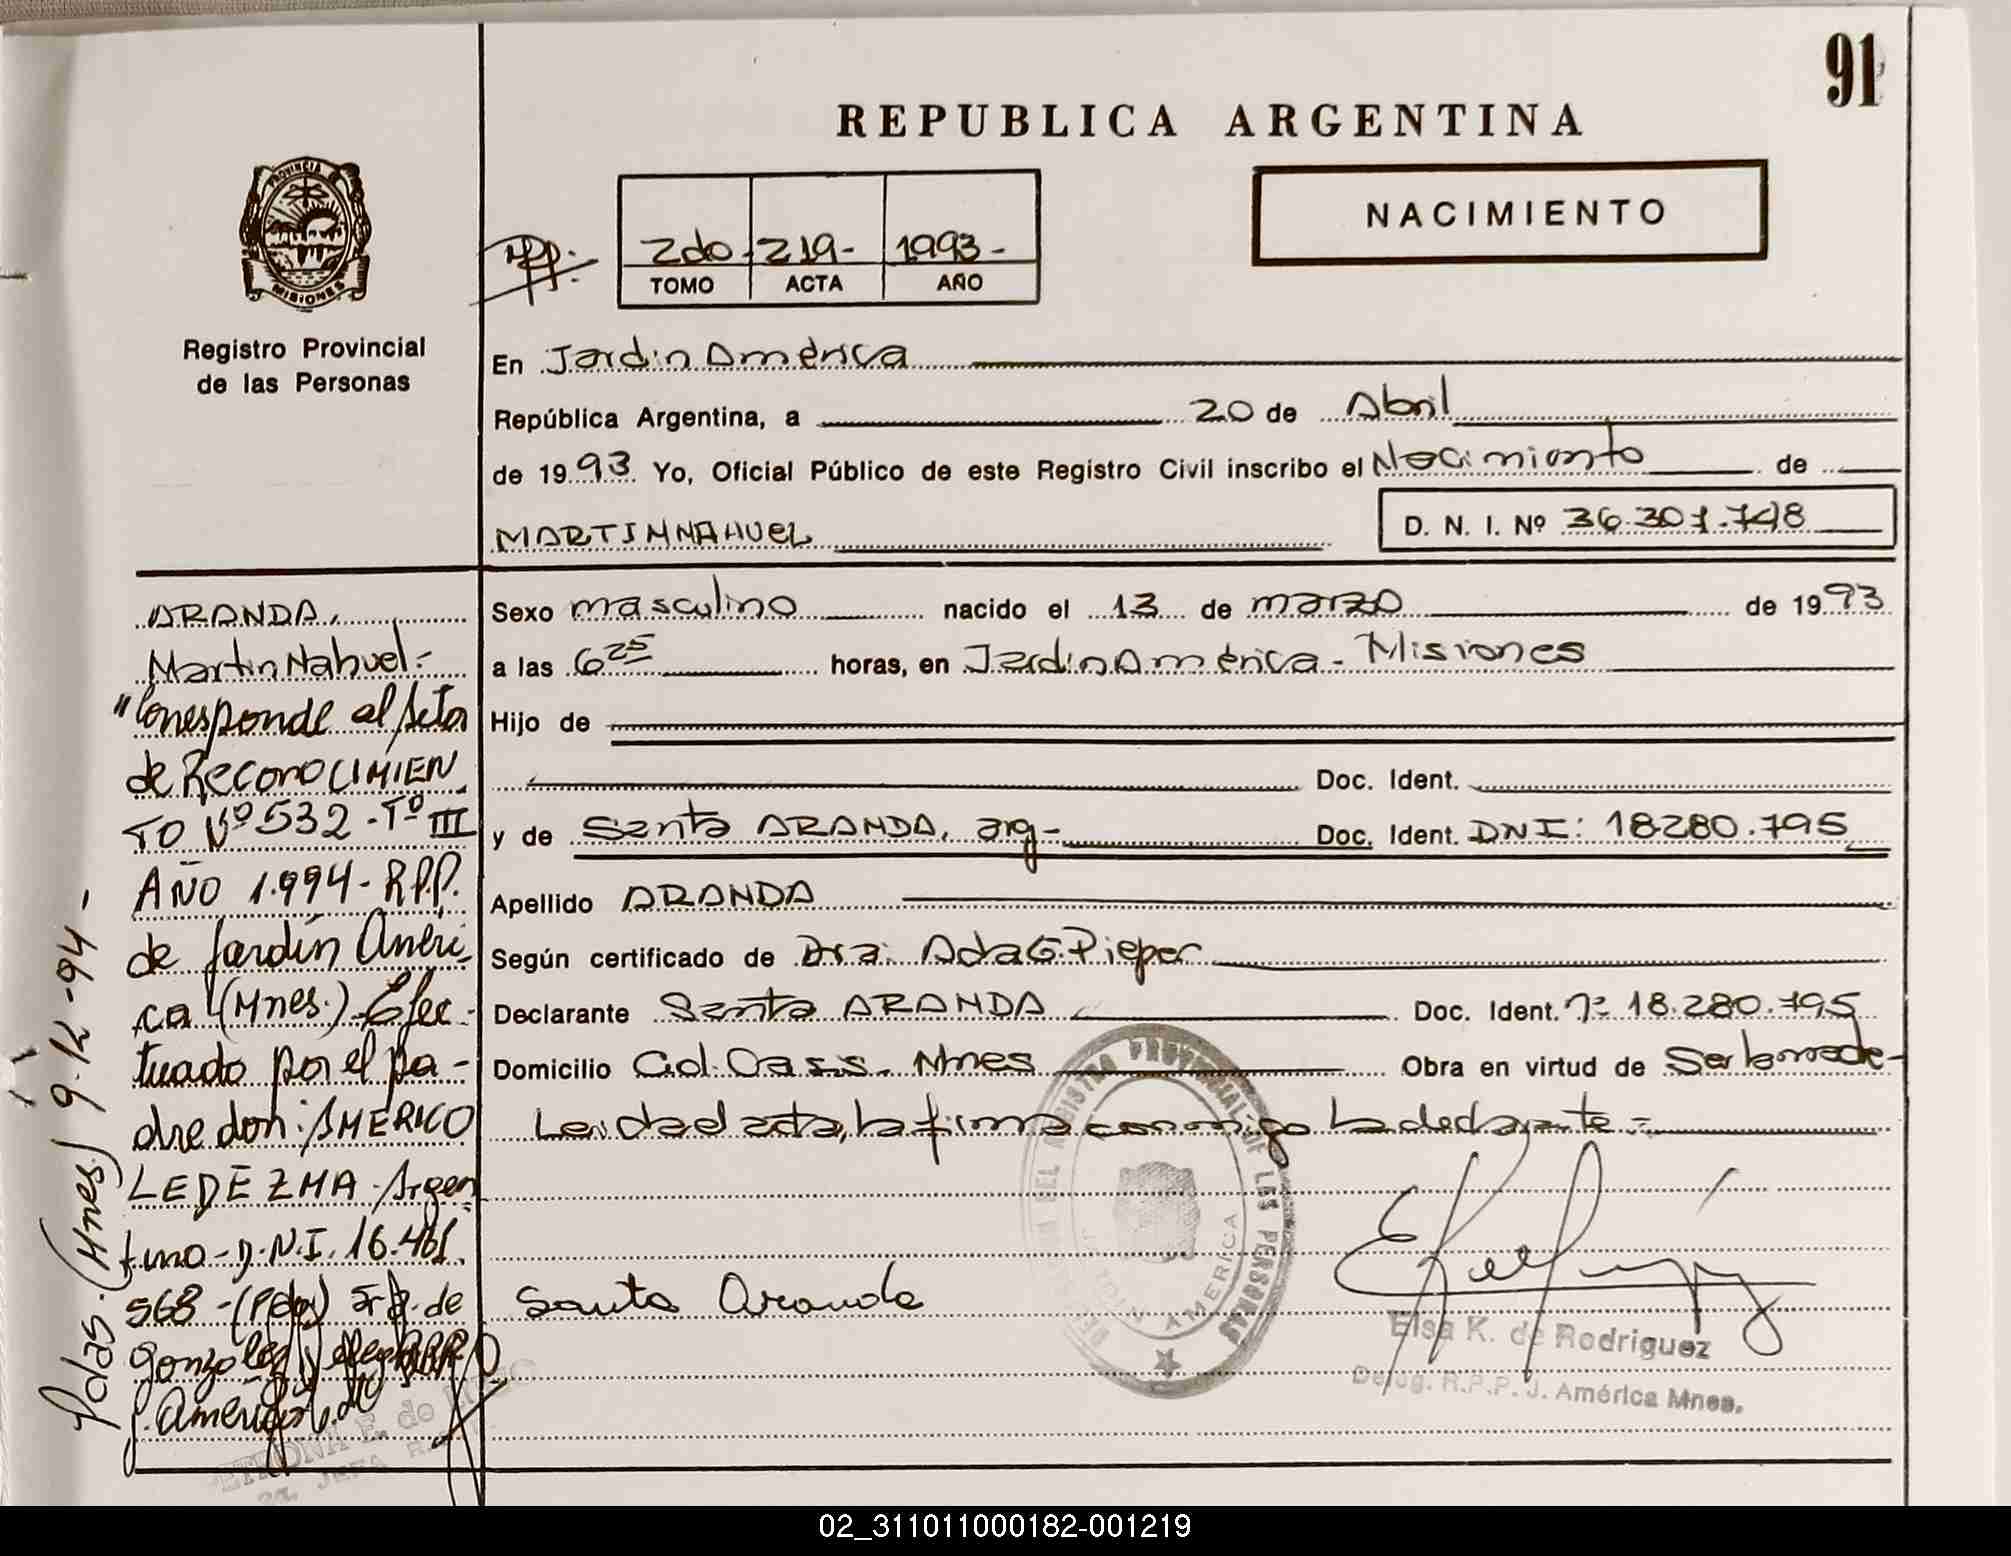 91
REPUBLICA ARGENTINA
NACIMIENTO
PROVINCIA DE
MISIONES
Registro Provincial
de las Personas
2do - 219 - 1993 -
TOMO ACTA AÑO
En Jardin América
República Argentina, a 20 de Abril
de 1993 Yo, Oficial Público de este Registro Civil inscribo el Nacimiento de
MARTIN NAHUEL
D. N. I. Nº 36.301.748
Sexo masculino nacido el 13 de marzo de 1993
a las 6 25 horas, en Jardin América - Misiones
Hijo de
Doc. Ident.
y de Santa ARANDA, arg - Doc. Ident. DNI: 18280.795
Apellido ARANDA
Según certificado de Dra. Ada G. Pieper
Declarante Santa ARANDA Doc. Ident. Nº 18.280.795
Domicilio Cd. Oasis. Mnes Obra en virtud de Ser la madre -
Leida el acta, la firma conmigo la declarante =
Santa Aranda
Elsa K. de Rodriguez
Deleg. R.P.P. J. América Mnes.
REGISTRO PROVINCIAL DE LES PERSONAS
AMERICA
ARANDA,
Martin Nahuel -
"Corresponde al Acta
de RECONOCIMIEN
TO Nº 532 - Tº III
AÑO 1.994 - R.P.P.
de Jardín Améri
ca (Mnes.) - Efec -
tuado por el pa -
dre don: AMERICO
LEDEZMA - Argen
tino - D.N.I. 16.461.
568 - (Fdo) de
Gonzalez
J. América
Pdas. (Mnes) 9-12-94 -
02_311011000182-001219